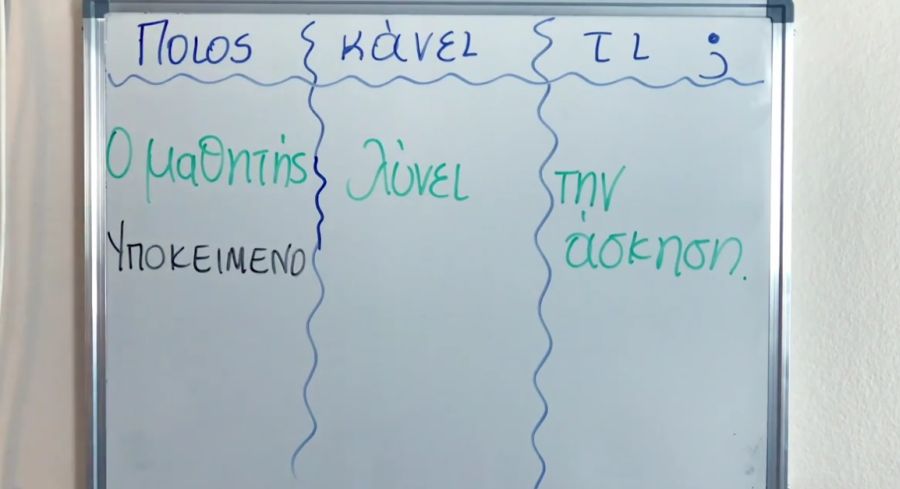 Ποιος κάνει τι ;
Ο μαθητής λύνει την
άσκηση.
ΥΠΟΚΕΙΜΕΝΟ